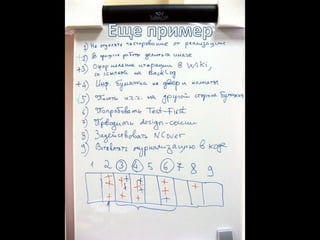 Еще пример
1) Не отделять тестирование от реализации
2) В графике работ делать иначе
+3) Оформление итерации в Wiki,
со ссылкой на Backlog
+4) Инф. бумажки на двери комнаты
5) Писать на другой стороне бумажки
+6) Попробовать Test-First
7) Проводить design-сессии
8) Задействовать NCover
9) Вставить журнализацию в коде
1 2 3 4 5 6 7 8 9